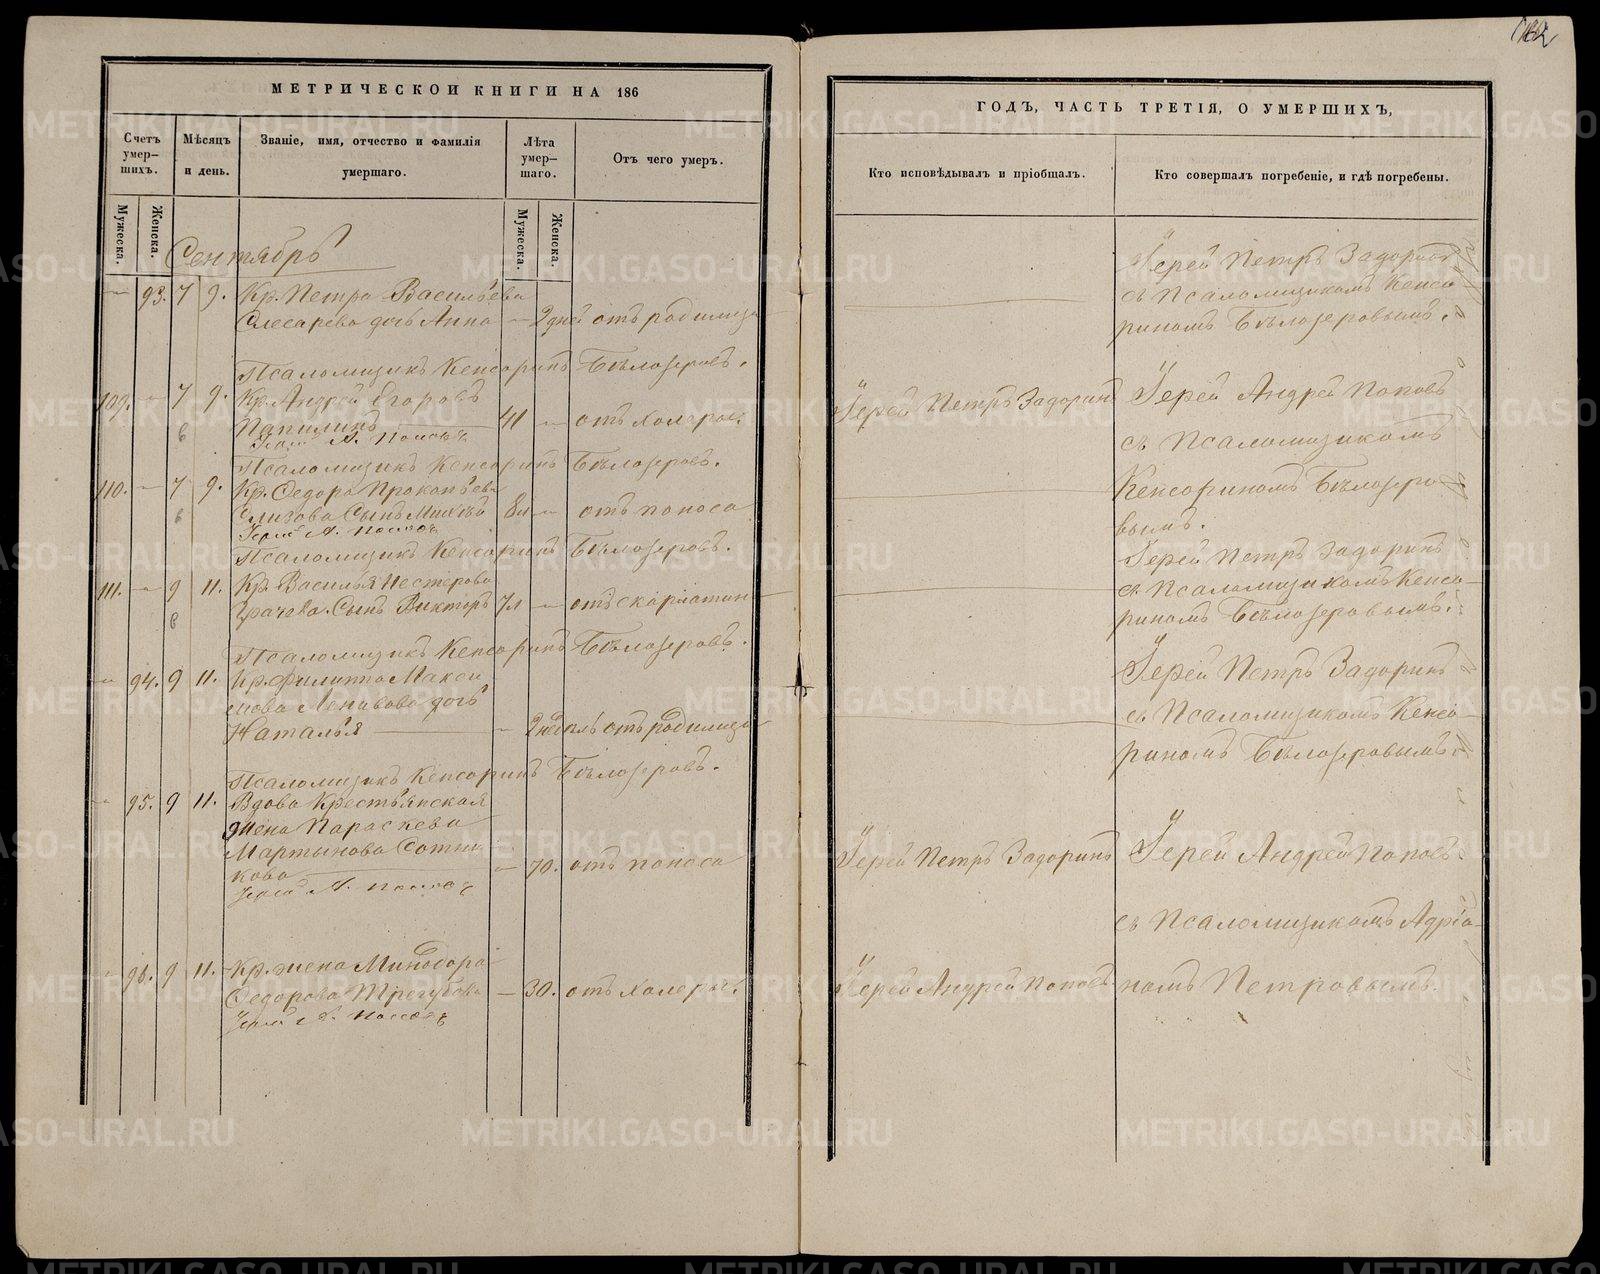 МЕТРИЧЕСКОЙ КНИГИ НА 186
Счетъ умер-шихъ.
Мѣсяцъ и день.
Званіе, имя, отчество и фамилія умершаго.
Лѣта умер-шаго.
Отъ чего умеръ.
Мужеска.
Женска.
Мужеска.
Женска.
Сентябрь
93. 7 9. Кр. Петра Васильева
Слесарева дочь Анна — 2 дней отъ родимца
Псаломщикъ Кенсоринъ Бѣлозеровъ.
109. — 7 9. Кр. Андрей Егоровъ
6 Папилинъ 41 — отъ холеры.
Іерей А. Поповъ
Псаломщикъ Кенсоринъ Бѣлозеровъ.
110. — 7 9. Кр. Ѳедора Прокопьева
6 Сынъ 8 — отъ поноса
Іерей А. Поповъ
Псаломщикъ Кенсоринъ Бѣлозеровъ.
111. — 9 11. Кр. Василья Нестерова
6 Грачева Сынъ Викторъ 7 л — отъ скарлатин
Псаломщикъ Кенсоринъ Бѣлозеровъ.
94. 9 11. Кр. Филиппа Макси
мова Ленивова дочь
Наталья — 2 недѣль отъ родимца
Псаломщикъ Кенсоринъ Бѣлозеровъ.
95. 9 11. Вдова Крестьянская
жена Параскева
Мартынова Сотни
кова — 70. отъ поноса
Іерей А. Поповъ
96. 9 11. Кр. жена Минодора
Ѳедорова Трегубова — 30. отъ холеры.
Іерей А. Поповъ
ГОДЪ, ЧАСТЬ ТРЕТІЯ, О УМЕРШИХЪ,
Кто исповѣдывалъ и пріобщалъ.
Кто совершалъ погребеніе, и гдѣ погребены.
Іерей Петръ Задоринъ
съ Псаломщикомъ Кенсо
риномъ Бѣлозеровымъ.
Іерей Петръ Задоринъ Іерей Андрей Поповъ
съ Псаломщикомъ
Кенсориномъ Бѣлозеро
вымъ.
Іерей Петръ Задоринъ
съ Псаломщикомъ Кенсо-
риномъ Бѣлозеровымъ.
Іерей Петръ Задоринъ
съ Псаломщикомъ Кенсо-
риномъ Бѣлозеровымъ.
Іерей Петръ Задоринъ Іерей Андрей Поповъ
съ Псаломщикомъ Адріа-
Іерей Андрей Поповъ номъ Петровымъ.
METRIKI.GASO-URAL.RU